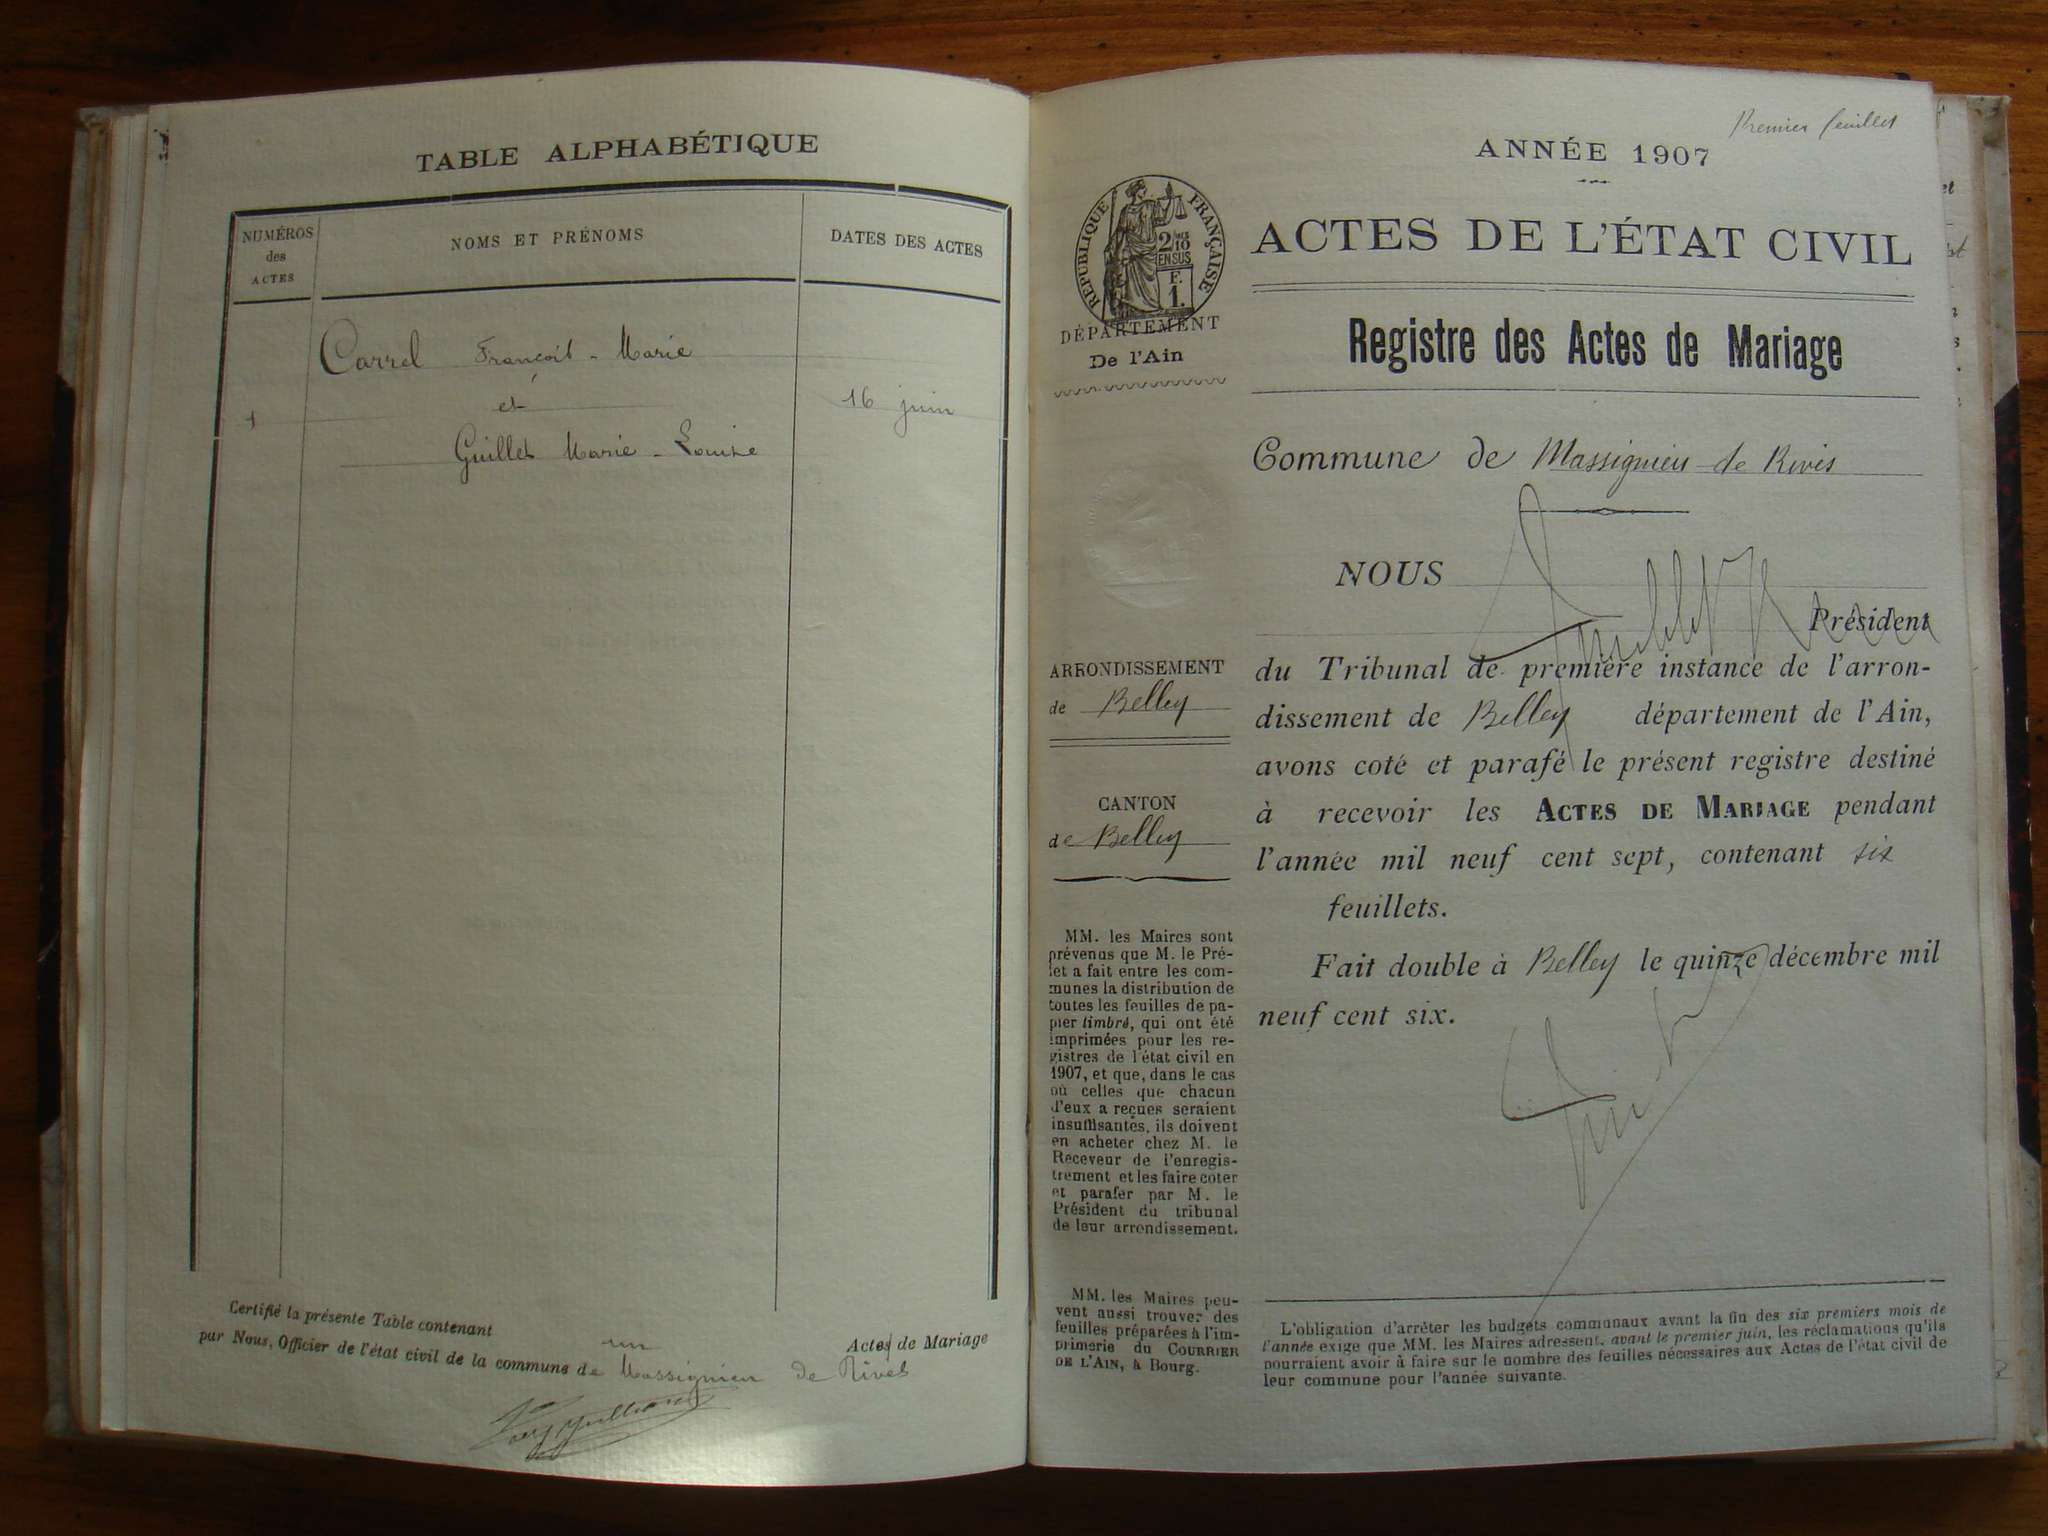 TABLE ALPHABÉTIQUE
NUMÉROS
des
ACTES
NOMS ET PRÉNOMS
DATES DES ACTES
Carrel François - Marie
1
et
16 juin
Guillet Marie - Louise
Certifié la présente Table contenant un Actes de Mariage
par Nous, Officier de l'état civil de la commune de Massignieu de Rives
Premier feuillet
ANNÉE 1907
RÉPUBLIQUE FRANÇAISE
2/10
EN SUS
F.
1.
DÉPARTEMENT
De l'Ain
ACTES DE L'ÉTAT CIVIL
Registre des Actes de Mariage
Commune de Massignieu de Rives
NOUS
Président
du Tribunal de première instance de l'arron-
dissement de Belley département de l'Ain,
avons coté et parafé le présent registre destiné
à recevoir les ACTES DE MARIAGE pendant
l'année mil neuf cent sept, contenant six
feuillets.
Fait double à Belley le quinze décembre mil
neuf cent six.
ARRONDISSEMENT
de Belley
CANTON
de Belley
MM. les Maires sont
prévenus que M. le Pré-
fet a fait entre les com-
munes la distribution de
toutes les feuilles de pa-
pier timbré, qui ont été
imprimées pour les re-
gistres de l'état civil en
1907, et que, dans le cas
où celles que chacun
d'eux a reçues seraient
insuffisantes, ils doivent
en acheter chez M. le
Receveur de l'enregis-
trement et les faire coter
et parafer par M. le
Président du tribunal
de leur arrondissement.
MM. les Maires peu-
vent aussi trouver des
feuilles préparées à l'im-
primerie du COURRIER
DE L'AIN, à Bourg.
L'obligation d'arrêter les budgets communaux avant la fin des six premiers mois de
l'année exige que MM. les Maires adressent, avant le premier juin, les réclamations qu'ils
pourraient avoir à faire sur le nombre des feuilles nécessaires aux Actes de l'état civil de
leur commune pour l'année suivante.